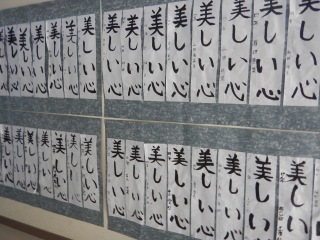 美しい心
美しい心
美しい心
美しい心
美しい心
美しい心
美しい心
美しい心
美しい心
美しい心
美しい心
美しい心
美しい心
美しい心
美しい心
美しい心
美しい心
美しい心
美しい心
美しい心
美しい心
美しい心
美しい心
美しい心
美しい心
美しい心
美しい心
美しい心
美しい心
美しい心